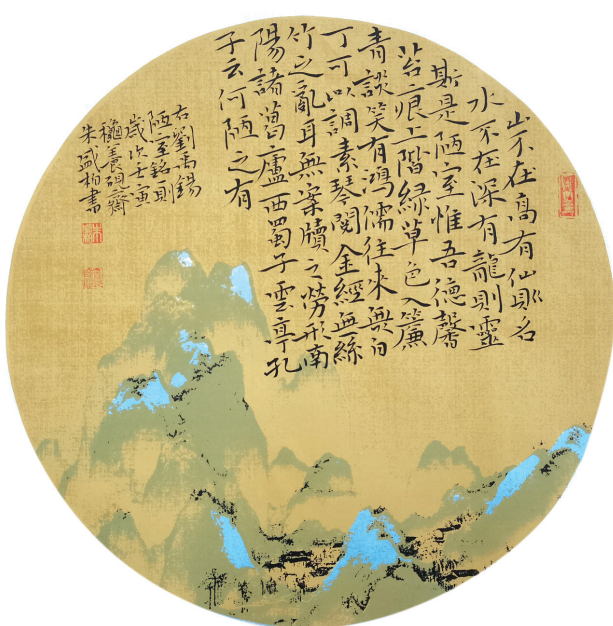 山不在高有仙則名
水不在深有龍則靈
斯是陋室惟吾德馨
苔痕上階緑草色入簾
青談笑有鴻儒往來無白
丁可以調素琴閲金經無絲
竹之亂耳無案牘之勞形南
陽諸葛廬西蜀子雲亭孔
子云何陋之有
右劉禹錫
陋室銘則
歲次壬寅
齋
朱盛柏書